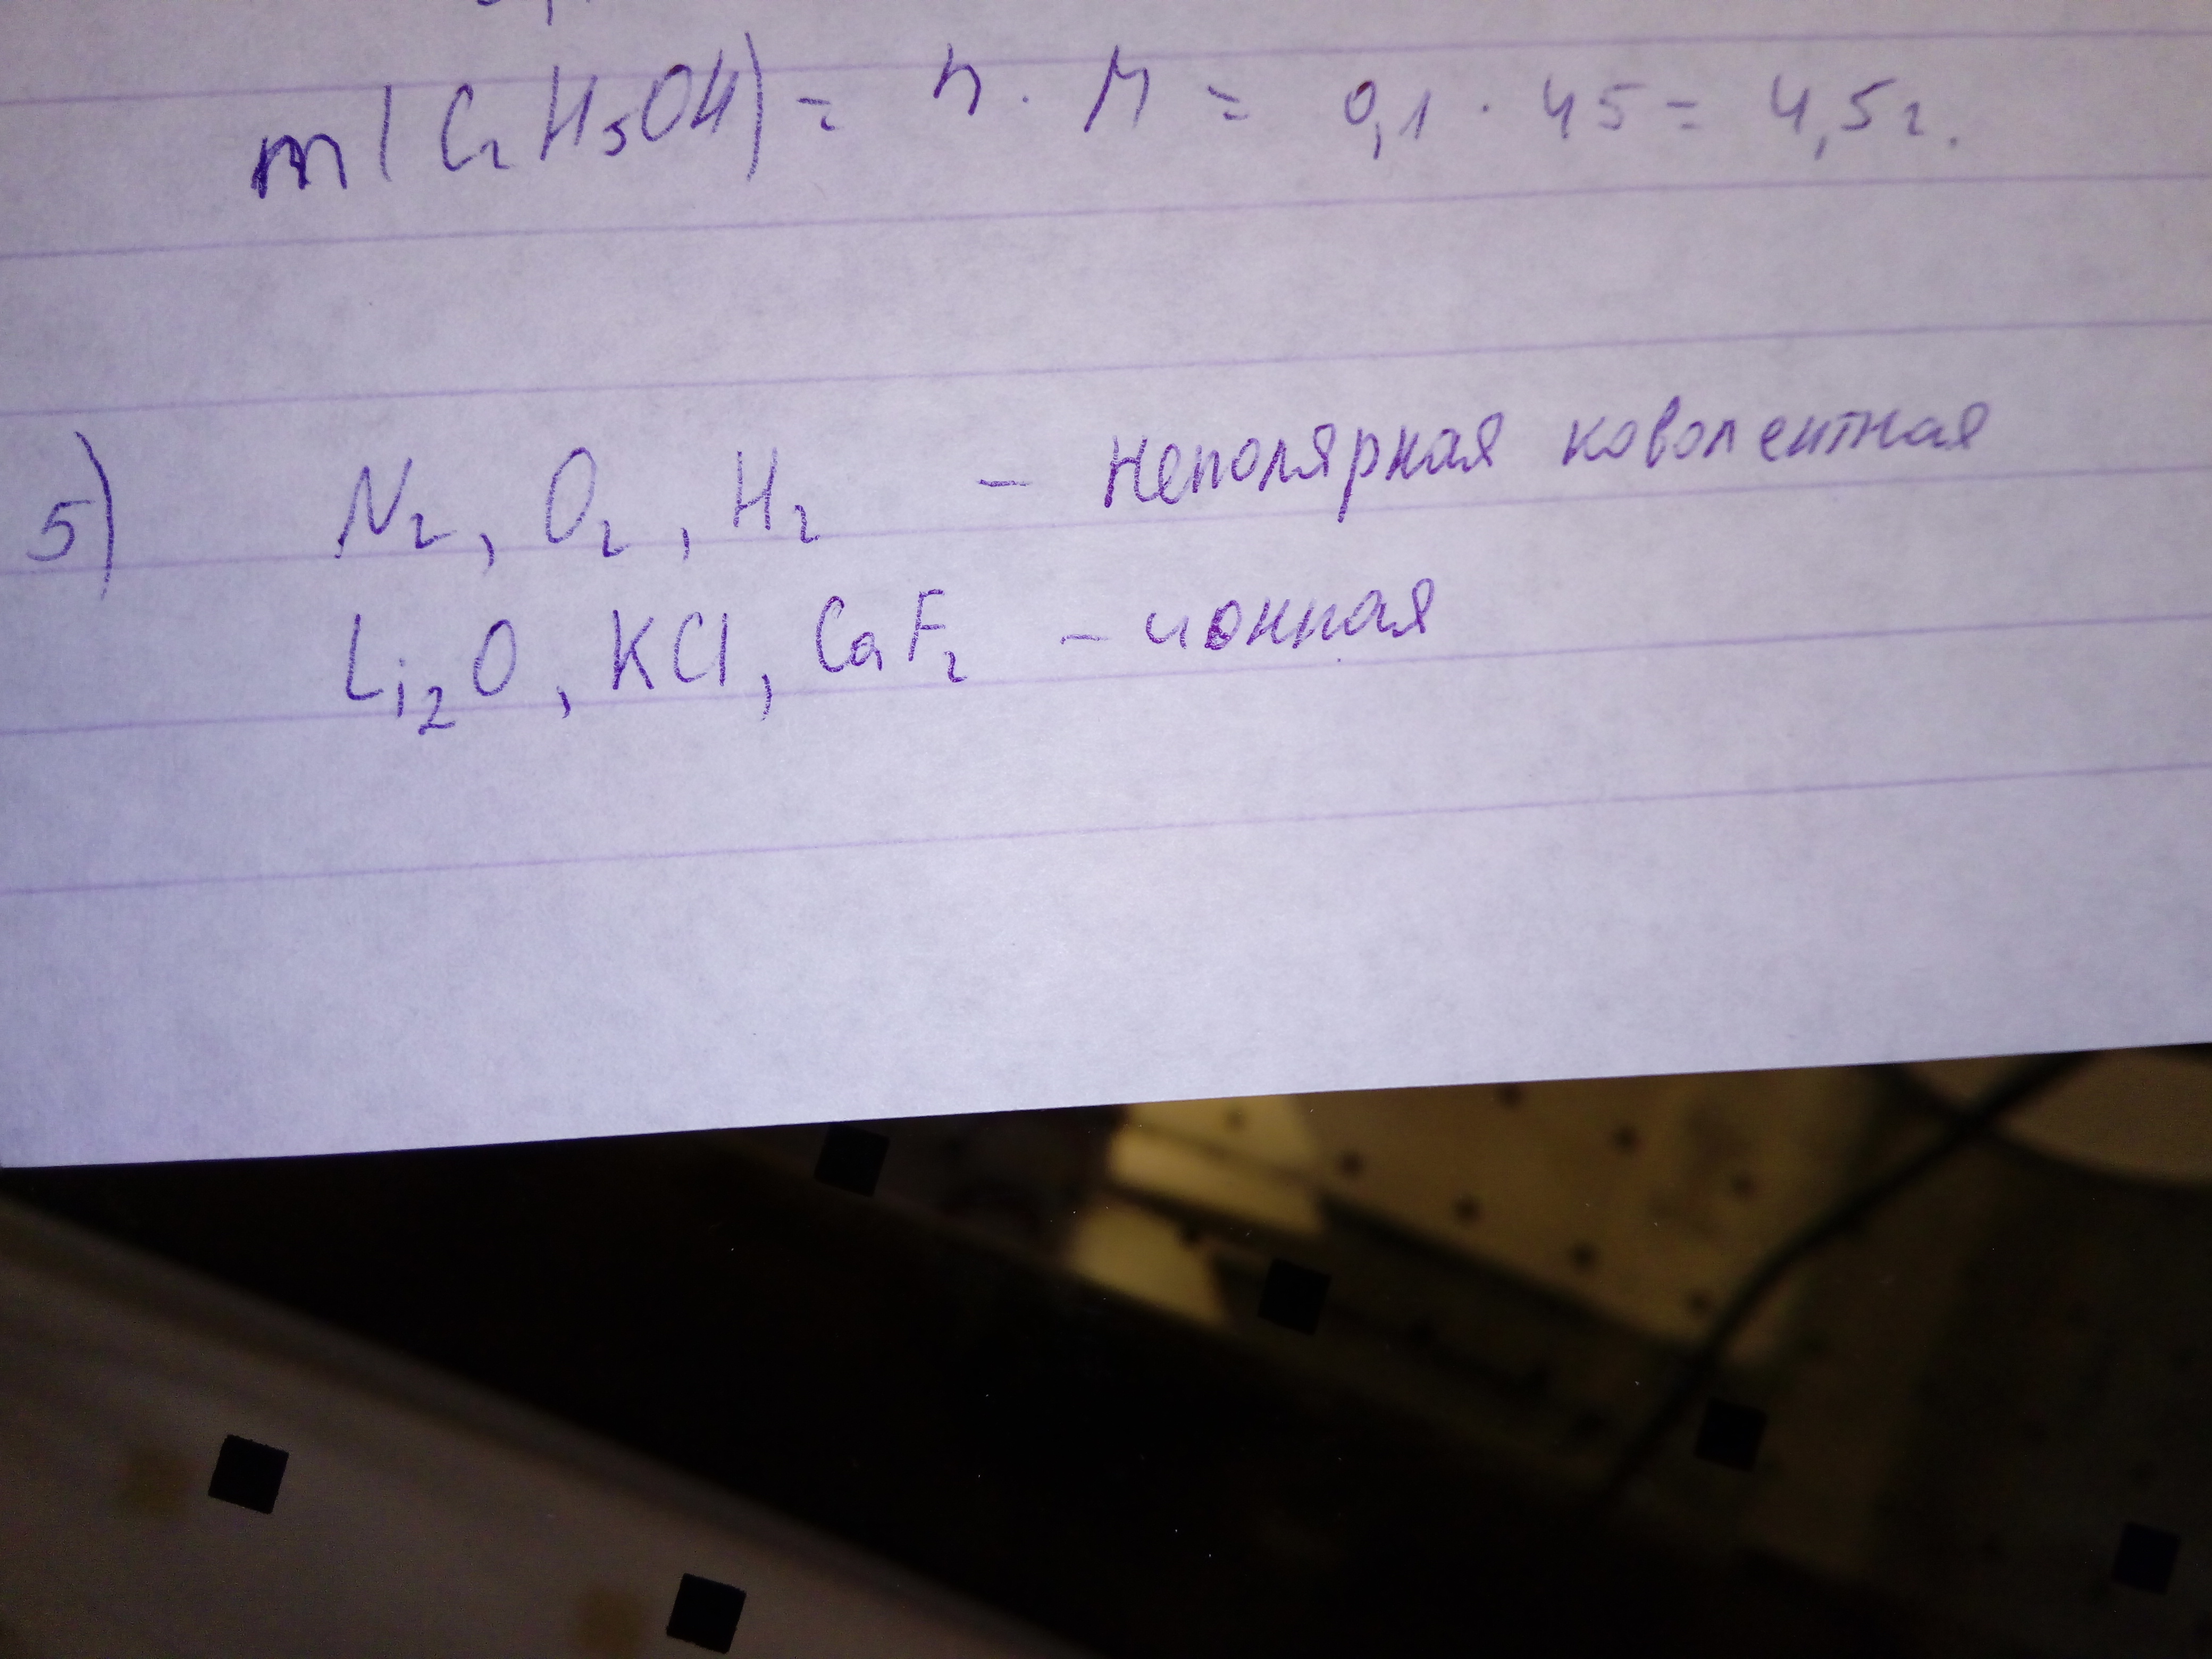 m(C₂H₅OH) = n · M = 0,1 · 45 = 4,5 г.
5) N₂, O₂, H₂ - неполярная коволентная
Li₂O, KCl, CaF₂ - ионная